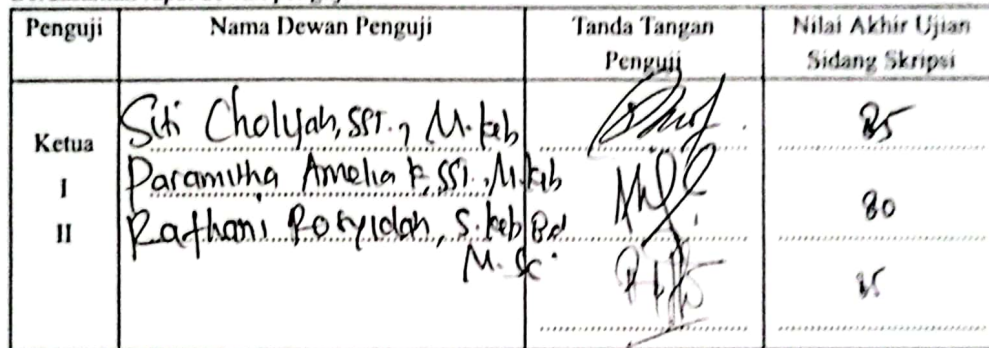 Penguji Nama Dewan Penguji Tanda Tangan Penguji Nilai Akhir Ujian Sidang Skripsi
Ketua Siti Cholyah, SST., M.keb 85
I Paramitha Amelia K, SST., M.keb 80
II Rafhani Rosyidah, S.keb Bd
M.Sc.